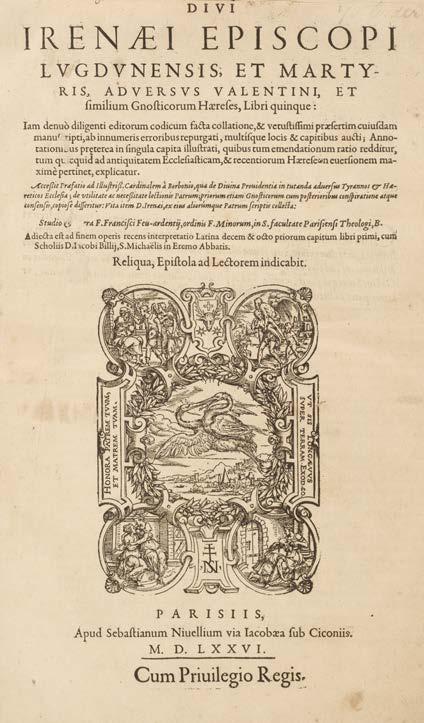 DIVI
IRENÆI EPISCOPI
LVGDVNENSIS, ET MARTY-
RIS, ADVERSVS VALENTINI, ET
similium Gnosticorum Hæreses, Libri quinque:
Iam denuò diligenti editorum codicum facta collatione, & vetustissimi præsertim cuiusdam
manuscripti, ab innumeris erroribus repurgati, multisque locis & capitibus aucti; Anno-
tationibus preterea in singula capita illustrati, quibus tum emendationum ratio redditur,
tum quicquid ad antiquitatem Ecclesiasticam, & recentiorum Hæreseων euersionem ma-
ximè pertinet, explicatur.
Accessit Præfatio ad Illustriss. Cardinalem à Borbonio, qua de Diuina Prouidentia in tutanda aduersus Tyrannos & Hæ-
reticos Ecclesia; de vtilitate ac necessitate lectionis Patrum; priorum etiam Gnosticorum cum posterioribus conspiratione atque
consensu, copiose disseritur: Vita item D. Irenæi, ex eius aliorumque Patrum scriptis collecta;
Studio ra F. Francisci Feu-ardentij, ordinis F. Minorum, in S. facultate Parisiensi Theologi, B.
Adiecta est ad finem operis recens interpretatio Latina decem & octo priorum capitum libri primi, cum
Scholiis D. Iacobi Billij, S. Michaëlis in Eremo Abbatis.
Reliqua, Epistola ad Lectorem indicabit.
HONORA PATREM TVVM,
ET MATREM TVAM.
VT SIS LONGÆVVS
SVPER TERRAM EXOD. 20.
PARISIIS,
Apud Sebastianum Niuellium via Iacobæa sub Ciconiis.
M. D. LXXVI.
Cum Priuilegio Regis.